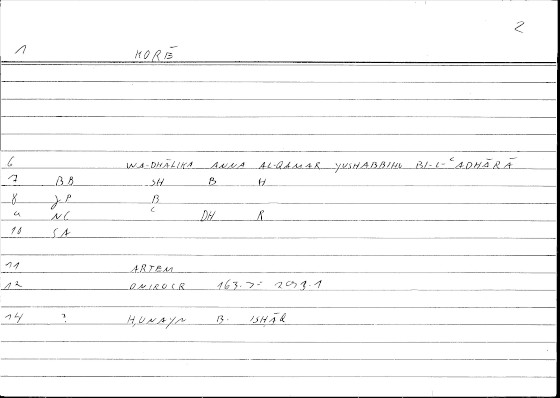 2
1 KORĒ
6 WA-DHĀLIKA ANNA AL-QAMAR YUSHABBIHU BI-L-ʿADHĀRĀ
7 BB SH B H
8 JP B
9 NC ʿ DH R
10 SA
11 ARTEM
12 ONIROCR 163.7 = 209.1
14 ? ḤUNAYN B. ISḤĀQ